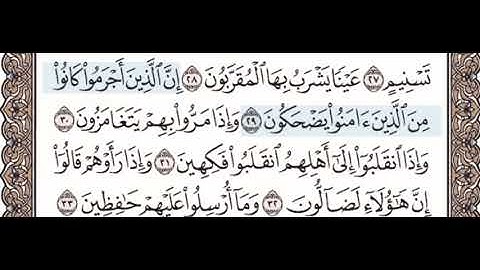 تَسْنِيمٍ ٢٧ عَيْنًا يَشْرَبُ بِهَا الْمُقَرَّبُونَ ٢٨ إِنَّ الَّذِينَ أَجْرَمُوا۟ كَانُوا۟
مِنَ الَّذِينَ ءَامَنُوا۟ يَضْحَكُونَ ٢٩ وَإِذَا مَرُّوا۟ بِهِمْ يَتَغَامَزُونَ ٣٠
وَإِذَا انقَلَبُوٓا۟ إِلَىٰٓ أَهْلِهِمُ انقَلَبُوا۟ فَكِهِينَ ٣١ وَإِذَا رَأَوْهُمْ قَالُوٓا۟
إِنَّ هَٰٓؤُلَآءِ لَضَآلُّونَ ٣٢ وَمَآ أُرْسِلُوا۟ عَلَيْهِمْ حَٰفِظِينَ ٣٣